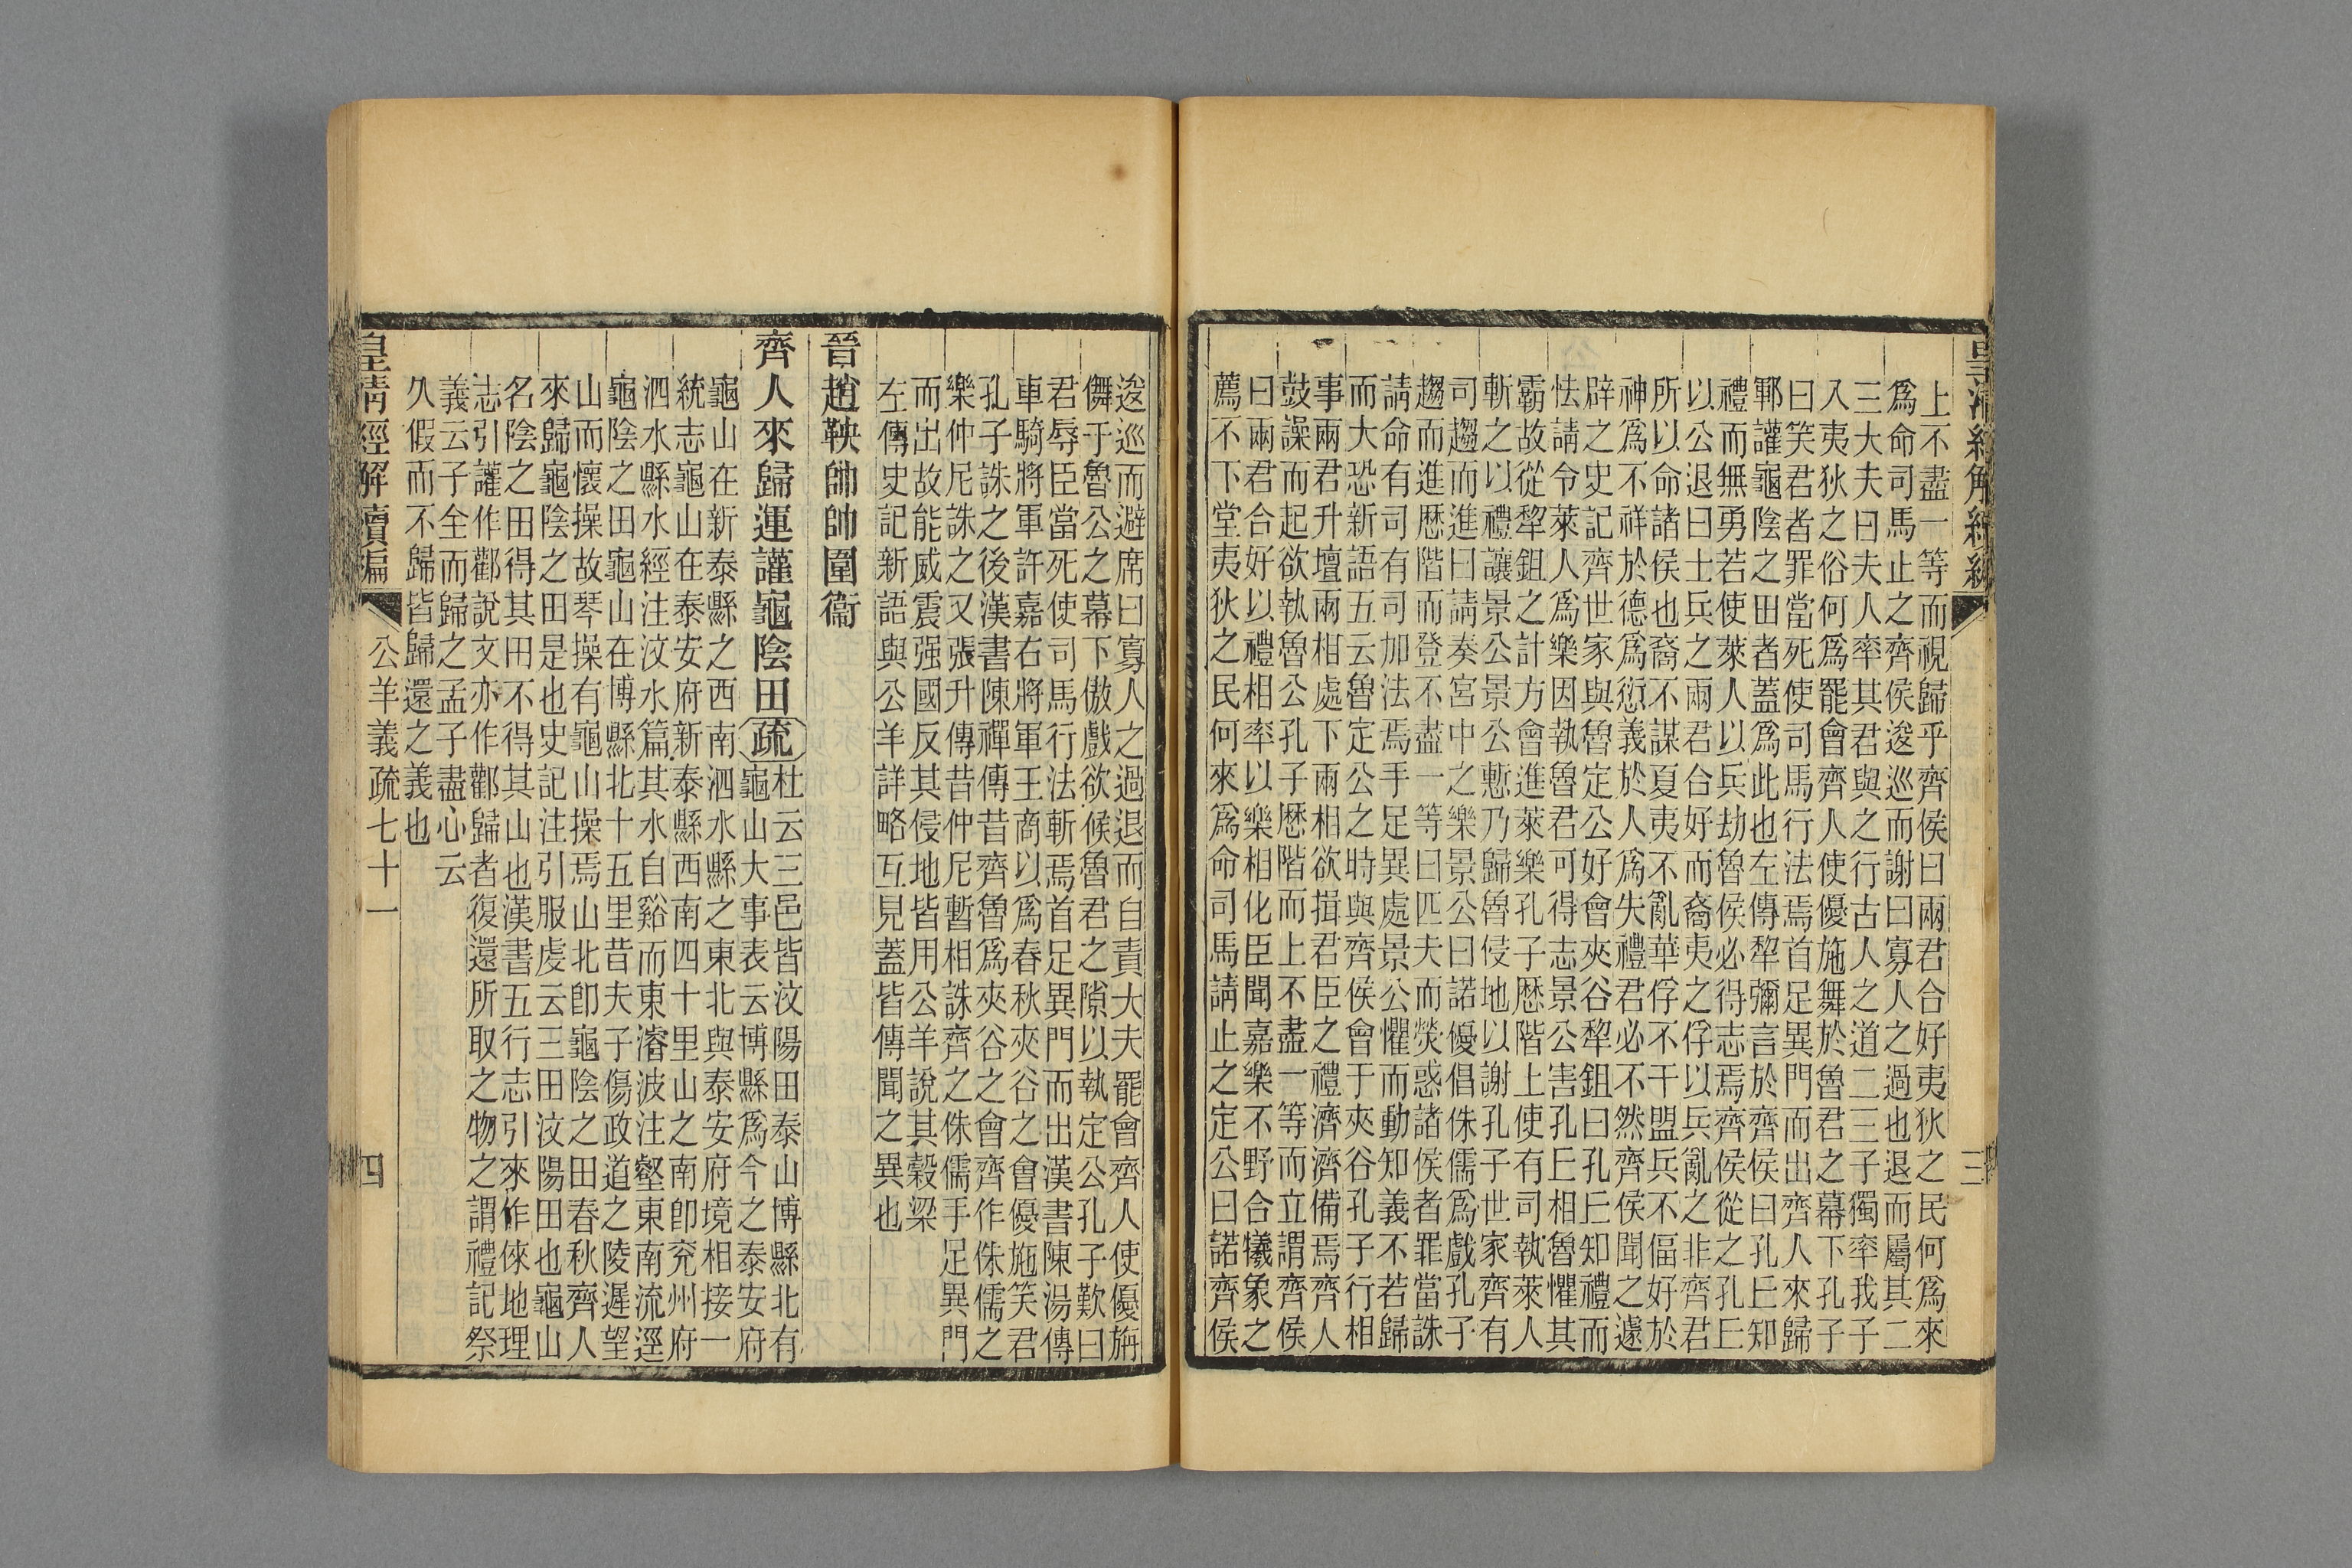 皇清經解續編
三
上不盡一等而視歸乎齊侯曰兩君合好夷狄之民何爲來
爲命司馬止之齊侯逡巡而謝曰寡人之過也退而屬其二
三大夫曰夫人率其君與之行古人之道二三子獨率我子
入夷狄之俗何爲罷會齊人使優施舞於魯君之幕下孔子
曰笑君者罪當死使司馬行法焉首足異門而出齊人來歸
鄆讙龜陰之田者蓋爲此也左傳犂彌言於齊侯曰孔丘知
禮而無勇若使萊人以兵劫魯侯必得志焉齊侯從之孔丘
以公退曰士兵之兩君合好而裔夷之俘以兵亂之非齊君
所以命諸侯也裔不謀夏夷不亂華俘不干盟兵不偪好於
神爲不祥於德爲愆義於人爲失禮君必不然齊侯聞之遽
辟之史記齊世家與魯定公好會夾谷犂鉏曰孔丘知禮而
怯請令萊人爲樂因執魯君可得志景公害孔丘相魯懼其
霸故從犂鉏之計方會進萊樂孔子歴階上使有司執萊人
斬之以禮讓景公景公慙乃歸魯侵地以謝孔子世家齊有
司趨而進曰請奏宮中之樂景公曰諾優倡侏儒爲戲孔子
趨而進歴階而登不盡一等曰匹夫而熒惑諸侯者罪當誅
請命有司有司加法焉手足異處景公懼而動知義不若歸
而大恐新語五云魯定公之時與齊侯會于夾谷孔子行相
事兩君升壇兩相處下兩相欲揖君臣之禮濟濟備焉齊人
鼓譟而起欲執魯公孔子歴階而上不盡一等而立謂齊侯
曰兩君合好以禮相率以樂相化臣聞嘉樂不野合犧象之
薦不下堂夷狄之民何來爲命司馬請止之定公曰諾齊侯
逡巡而避席曰寡人之過退而自責大夫罷會齊人使優旃
儛于魯公之幕下傲戲欲候魯君之隙以執定公孔子歎曰
君辱臣當死使司馬行法斬焉首足異門而出漢書陳湯傳
車騎將軍許嘉右將軍王商以爲春秋夾谷之會優施笑君
孔子誅之後漢書陳禪傳昔齊魯爲夾谷之會齊作侏儒之
樂仲尼誅之又張升傳昔仲尼暫相誅齊之侏儒手足異門
而出故能威震强國反其侵地皆用公羊說其穀梁
左傳史記新語與公羊詳略互見蓋皆傳聞之異也
晉趙鞅帥師圍衞
齊人來歸運讙龜陰田疏杜云三邑皆汶陽田泰山博縣北有
龜山大事表云博縣爲今之泰安府
龜山在新泰縣之西南泗水縣之東北與泰安府境相接一
統志龜山在泰安府新泰縣西南四十里山之南卽兖州府
泗水縣水經注汶水篇其水自谿而東濬波注壑東南流逕
龜陰之田龜山在博縣北十五里昔夫子傷政道之陵遲望
山而懷操故琴操有龜山操焉山北卽龜陰之田春秋齊人
來歸龜陰之田是也史記注引服虔云三田汶陽田也龜山
名陰之田得其田不得其山也漢書五行志引來作倈地理
志引讙作酄說文亦作酄歸者復還所取之物之謂禮記祭
義云子全而歸之孟子盡心云
久假而不歸皆歸還之義也
皇清經解續編
公羊義疏七十一
四